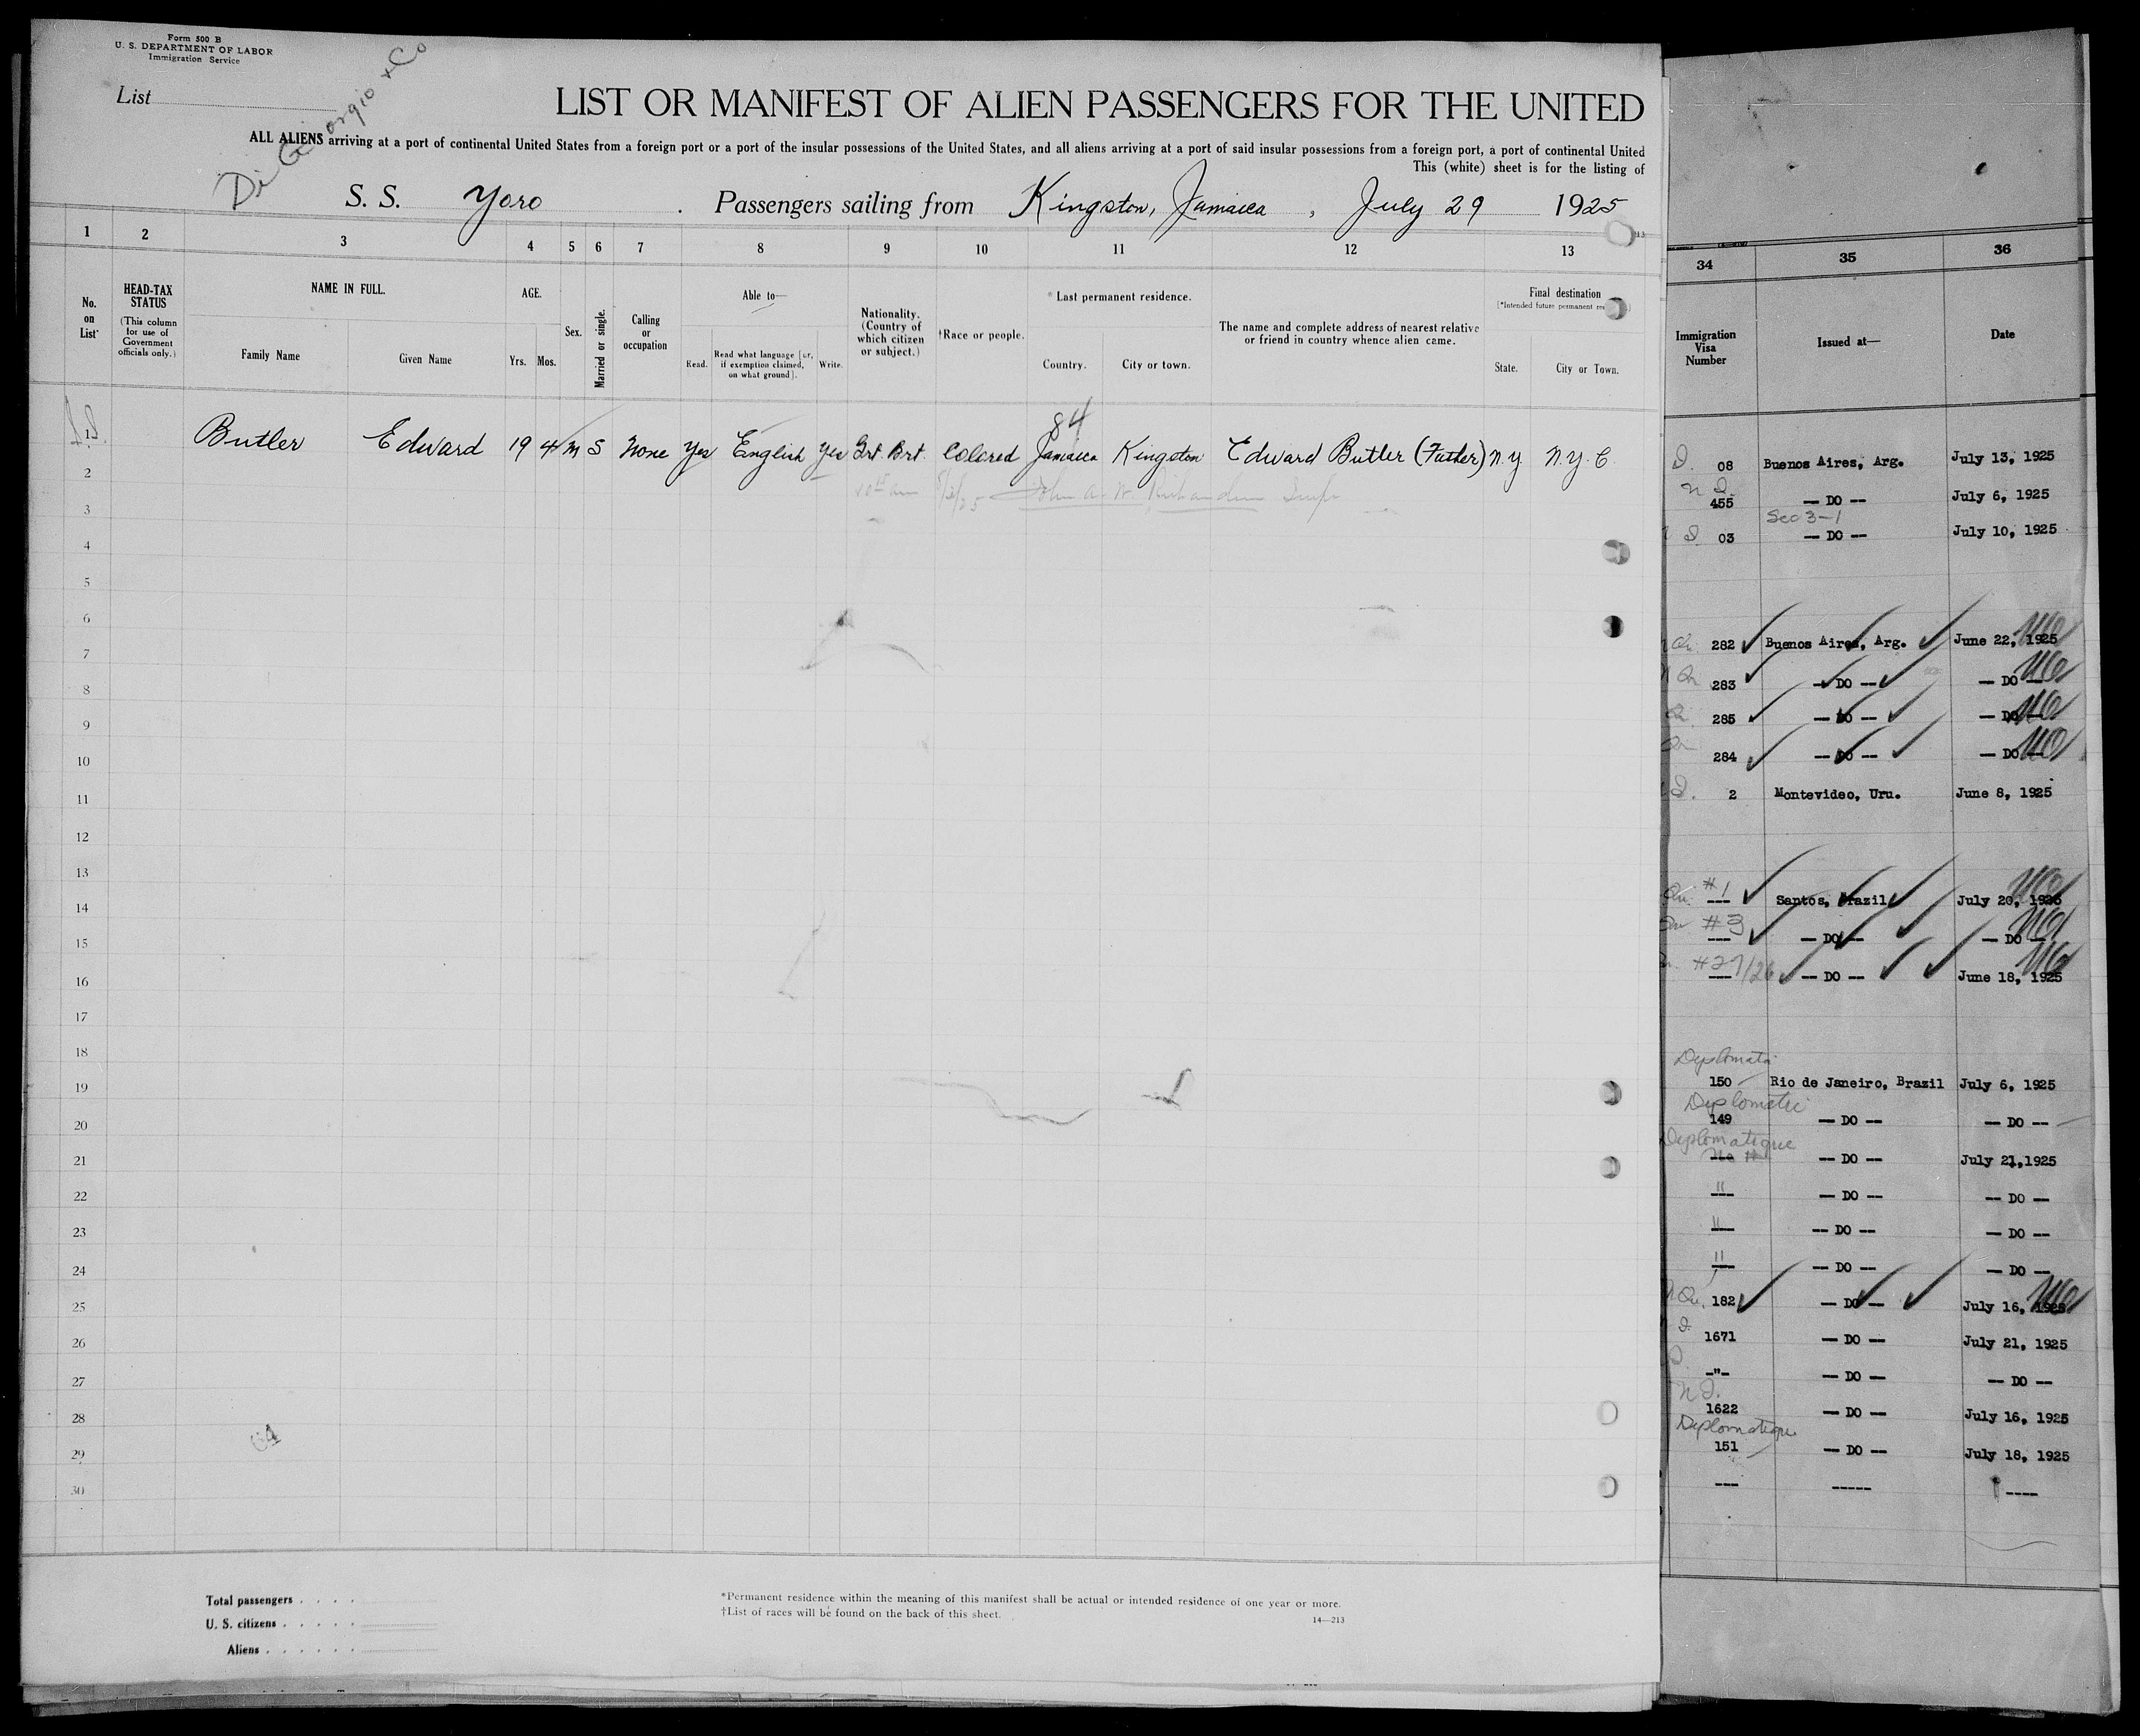 Form 500 B
U. S. DEPARTMENT OF LABOR
Immigration Service
List
Di Giorgio & Co
LIST OR MANIFEST OF ALIEN PASSENGERS FOR THE UNITED
ALL ALIENS arriving at a port of continental United States from a foreign port or a port of the insular possessions of the United States, and all aliens arriving at a port of said insular possessions from a foreign port, a port of continental United
This (white) sheet is for the listing of
S. S. Yoro . Passengers sailing from Kingston, Jamaica , July 29 1925
1 2 3 4 5 6 7 8 9 10 11 12 13
No. on List
HEAD-TAX STATUS
(This column for use of Government officials only.)
NAME IN FULL.
Family Name Given Name
AGE.
Yrs. Mos.
Sex.
Married or single.
Calling or occupation
Able to—
Read. Read what language [or, if exemption claimed, on what ground]. Write.
Nationality. (Country of which citizen or subject.)
†Race or people.
*Last permanent residence.
Country. City or town.
The name and complete address of nearest relative or friend in country whence alien came.
Final destination
[*Intended future permanent
State. City or Town.
84
1 Butler Edward 19 4 M S None Yes English Yes Grt. Brt. Colored Jamaica Kingston Edward Butler (Father) N.Y. N.Y.C.
2
3
4
5
6
7
8
9
10
11
12
13
14
15
16
17
18
19
20
21
22
23
24
25
26
27
28
29
30
Total passengers . . . .
U. S. citizens . . . . .
Aliens . . . . . .
*Permanent residence within the meaning of this manifest shall be actual or intended residence of one year or more.
†List of races will be found on the back of this sheet.
14—213
34 35 36
Immigration Visa Number
Issued at—
Date
08 Buenos Aires, Arg. July 13, 1925
455 — DO — July 6, 1925
Sec 3-1
03 — DO — July 10, 1925
282 Buenos Aires, Arg. June 22, 1925
283 — DO — — DO —
285 — DO — — DO —
284 — DO — — DO —
2 Montevideo, Uru. June 8, 1925
#1
--- Santos, Brazil July 20, 1925
#3
--- — DO — — DO —
#27/26
--- — DO — June 18, 1925
150 Rio de Janeiro, Brazil July 6, 1925
Diplomatic
149 — DO — — DO —
Diplomatique
--- — DO — July 21,1925
" — DO — — DO —
" — DO — — DO —
" — DO — — DO —
182 — DO — July 16, 1925
1671 — DO — July 21, 1925
-"- — DO — — DO —
1622 — DO — July 16, 1925
Diplomatique
151 — DO — July 18, 1925
--- ----- ----